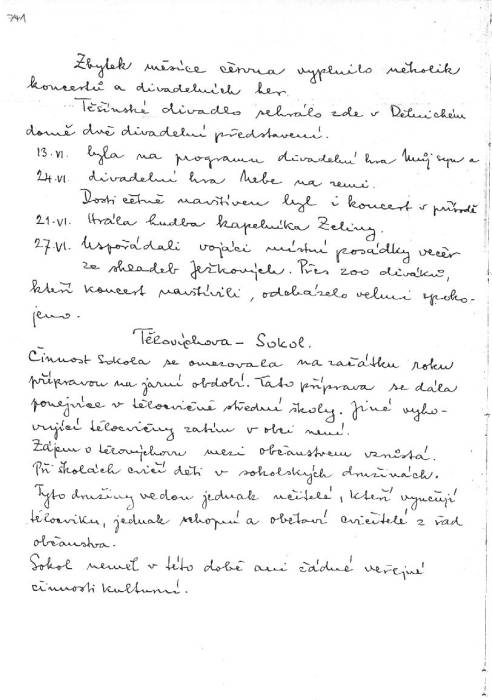 741
Zbytek měsíce června vyplnilo několik
koncertů a divadelních her.
Těšínské divadlo sehrálo zde v Dělnickém
domě dvě divadelní představení.
13.VI. byla na programu divadelní hra Můj syn a
24.VI. divadelní hra Nebe na zemi.
Dosti četně navštíven byl i koncert v přírodě
21.VI. Hrála hudba kapelníka Zeliny.
27.VI. Uspořádali vojáci místní posádky večer
ze skladeb Ježkových. Přes 200 diváků,
kteří koncert navštívili, odcházelo velmi spoko-
jeno.
Tělovýchova - Sokol.
Činnost Sokola se omezovala na začátku roku
přípravou na jarní období. Tato příprava se dála
ponejvíce v tělocvičně střední školy. Jiné vyho-
vující tělocvičny zatím v obci není.
Zájem o tělovýchovu mezi občanstvem vzrůstá.
Při školách cvičí děti v sokolských družinách.
Tyto družiny vedou jednak učitelé, kteří vyučují
tělocviku, jednak schopní a obětaví cvičitelé z řad
občanstva.
Sokol neměl v této době ani žádné veřejné
činnosti kulturní.